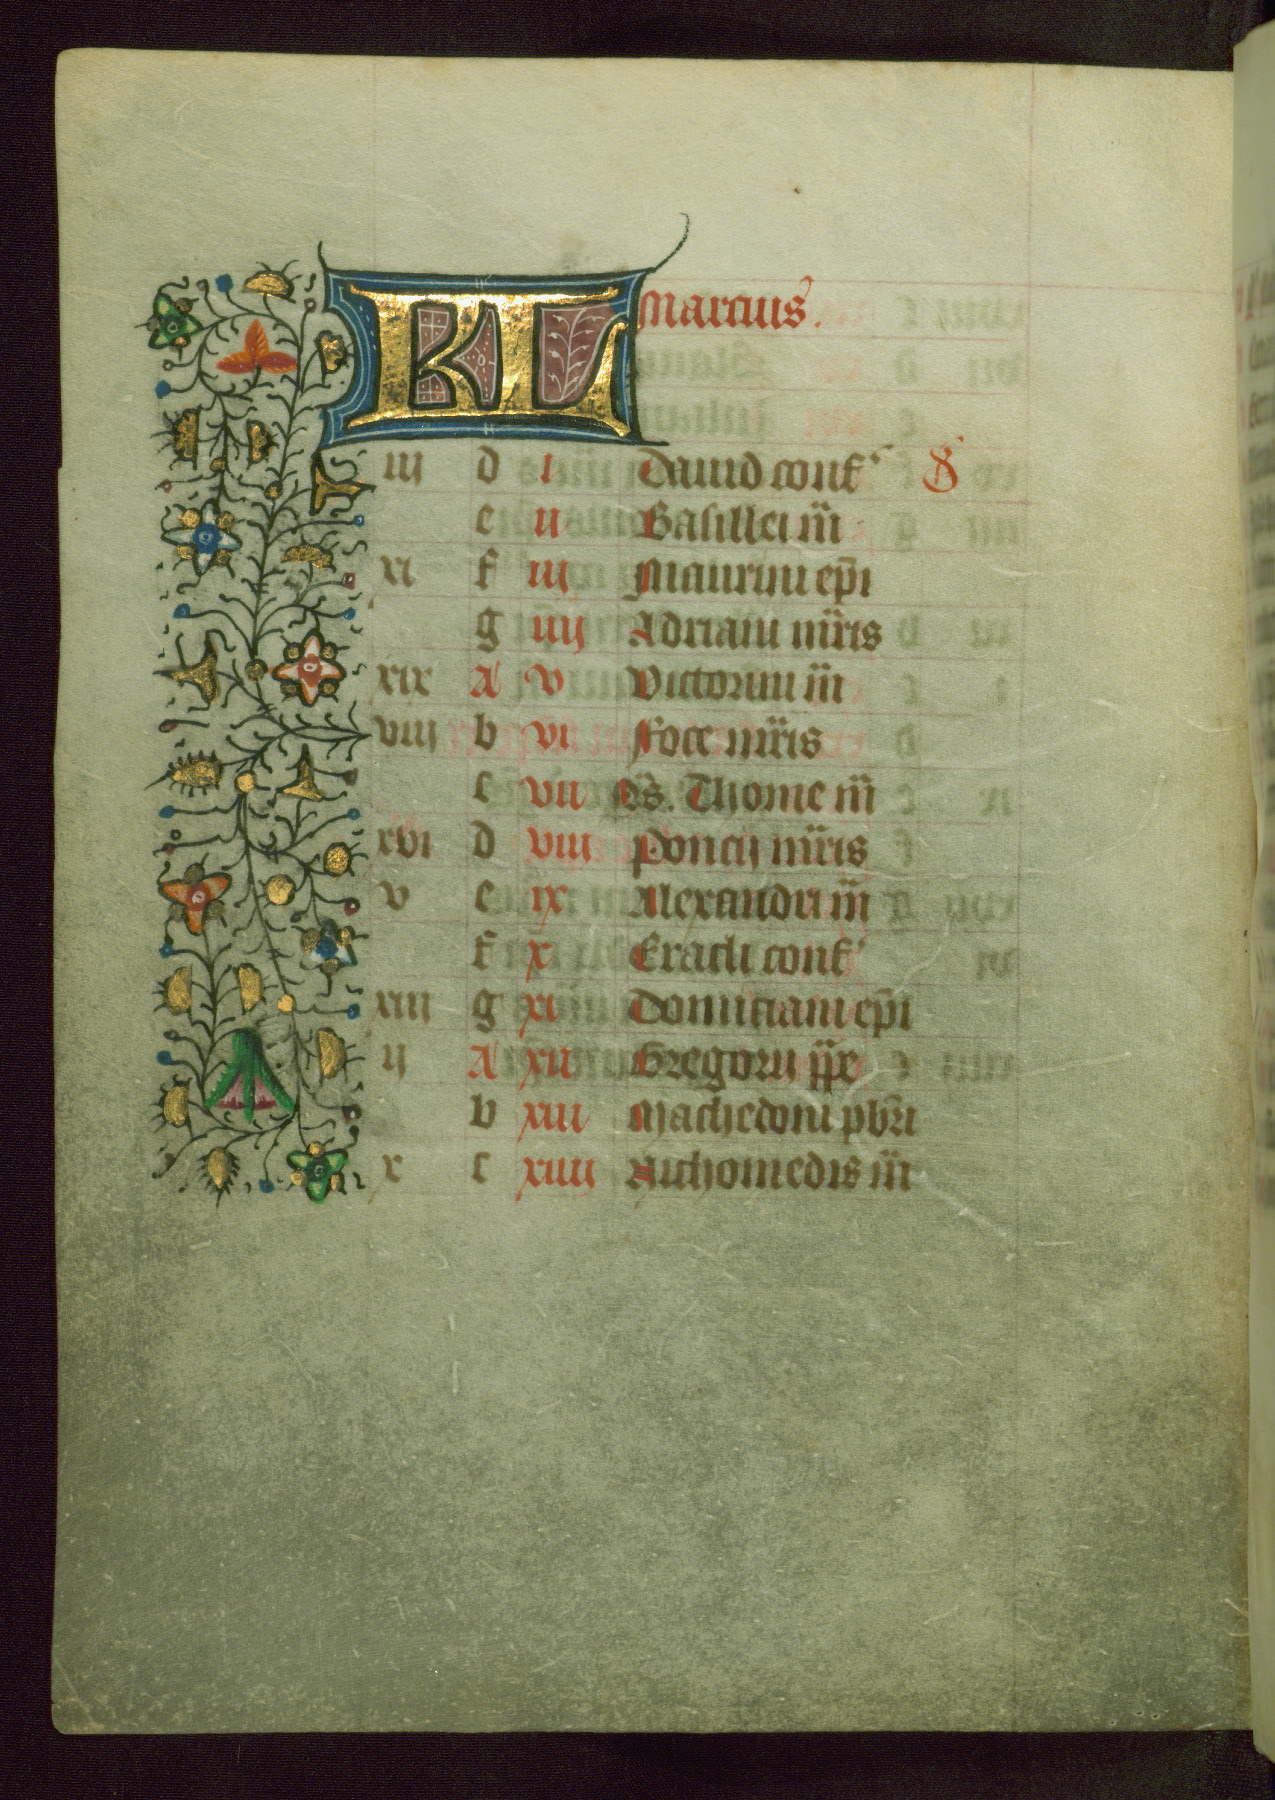 KL Marcius.
iii d i Dauid conf' S
e ii Basillei m̄
xi f iii Maurini ep̄i
g iiij Adriani mr̄is
xix A v Victorini m̄
viij b vi Foce mr̄is
c vii S. Thome m̄
xvi d viii Poncij mr̄is
v e ix Alexandri m̄
f x Eracli conf'
xiii g xi Domiciani ep̄i
ij A xii Gregorii p̄pe
b xiii Machedoni pbr̄i
x c xiiii Nichomedis m̄